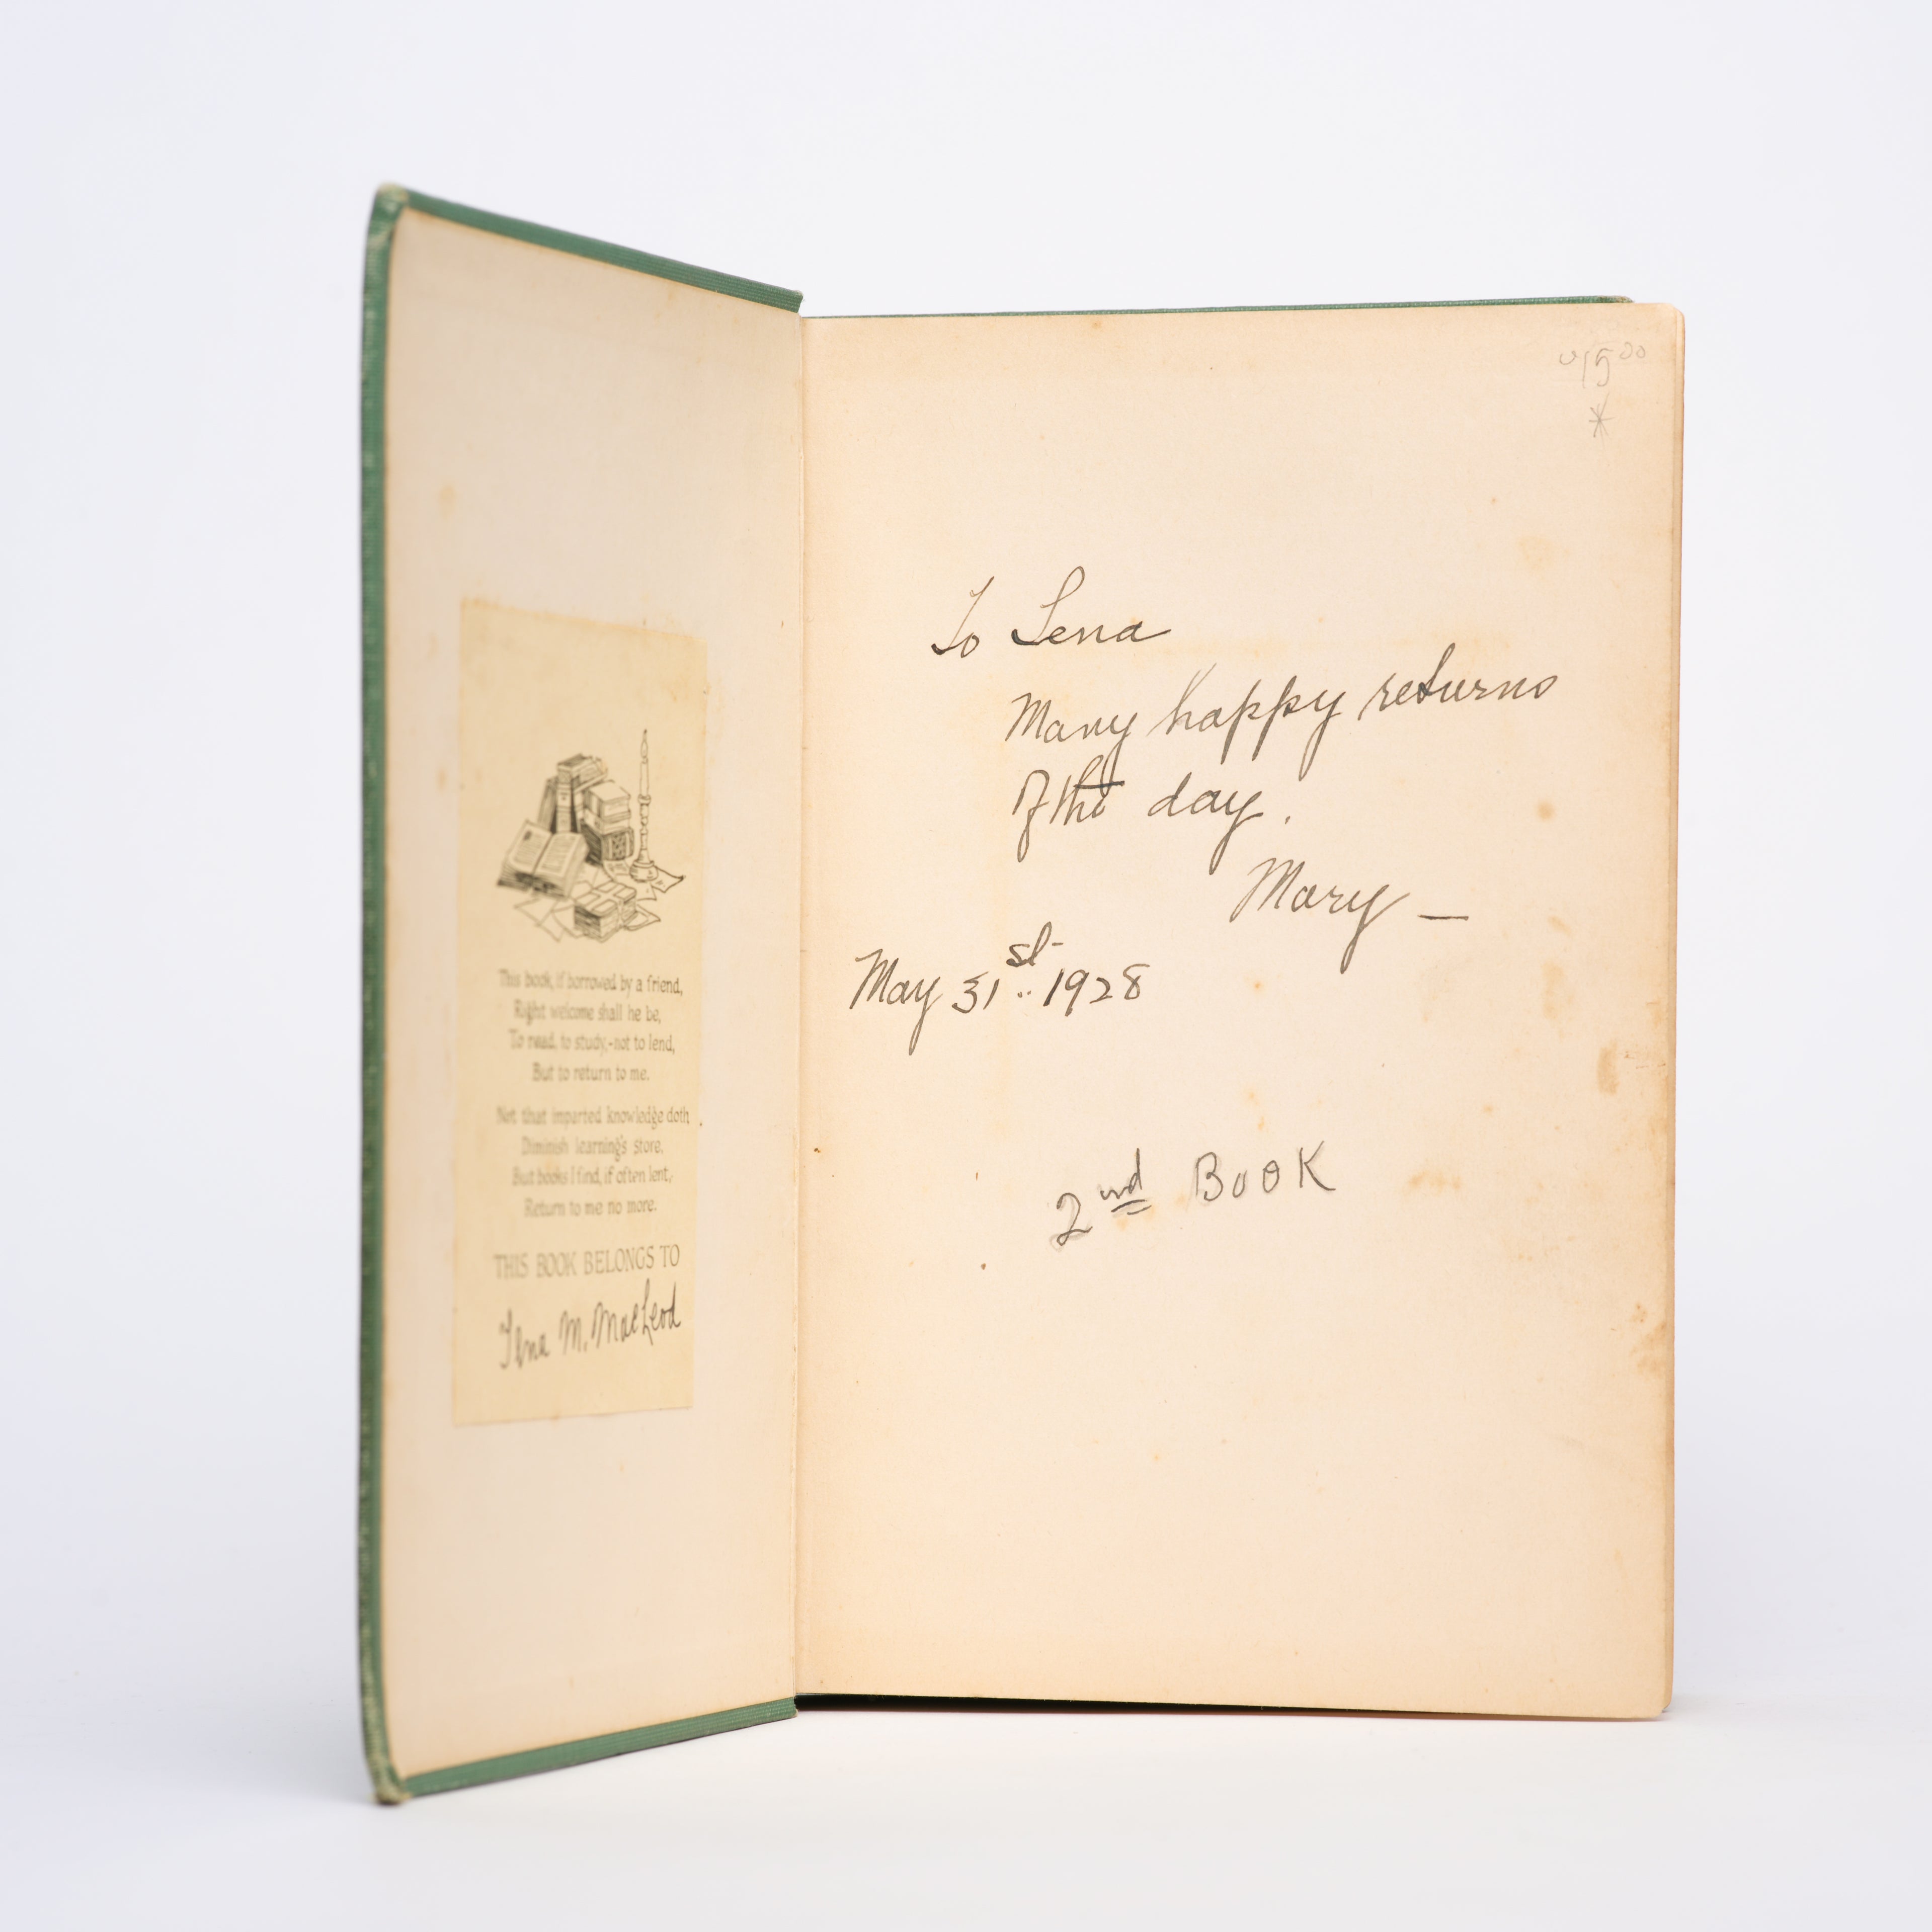 This book, if borrowed by a friend,
Right welcome shall he be,
To read, to study,-not to lend,
But to return to me.
Not that imparted knowledge doth
Diminish learning's store.
But books I find, if often lent,
Return to me no more.
THIS BOOK BELONGS TO
M. MacLeod
To Lena
Many happy returns
Of the day.
Mary —
May 31st 1928
2nd BOOK